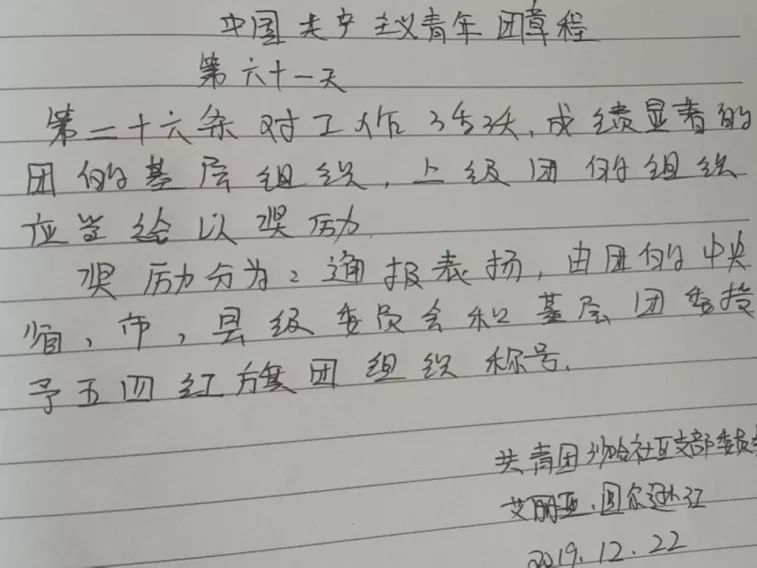 中国共产主义青年团章程
第六十一天
第二十六条 对工作活跃,成绩显著的
团的基层组织,上级团的组织
应当给以奖励.
奖励分为:通报表扬,由团的中央
省,市,县级委员会和基层团委授
予五四红旗团组织称号.
共青团 社区支部委员
艾丽亚.图尔逊江
2019.12.22